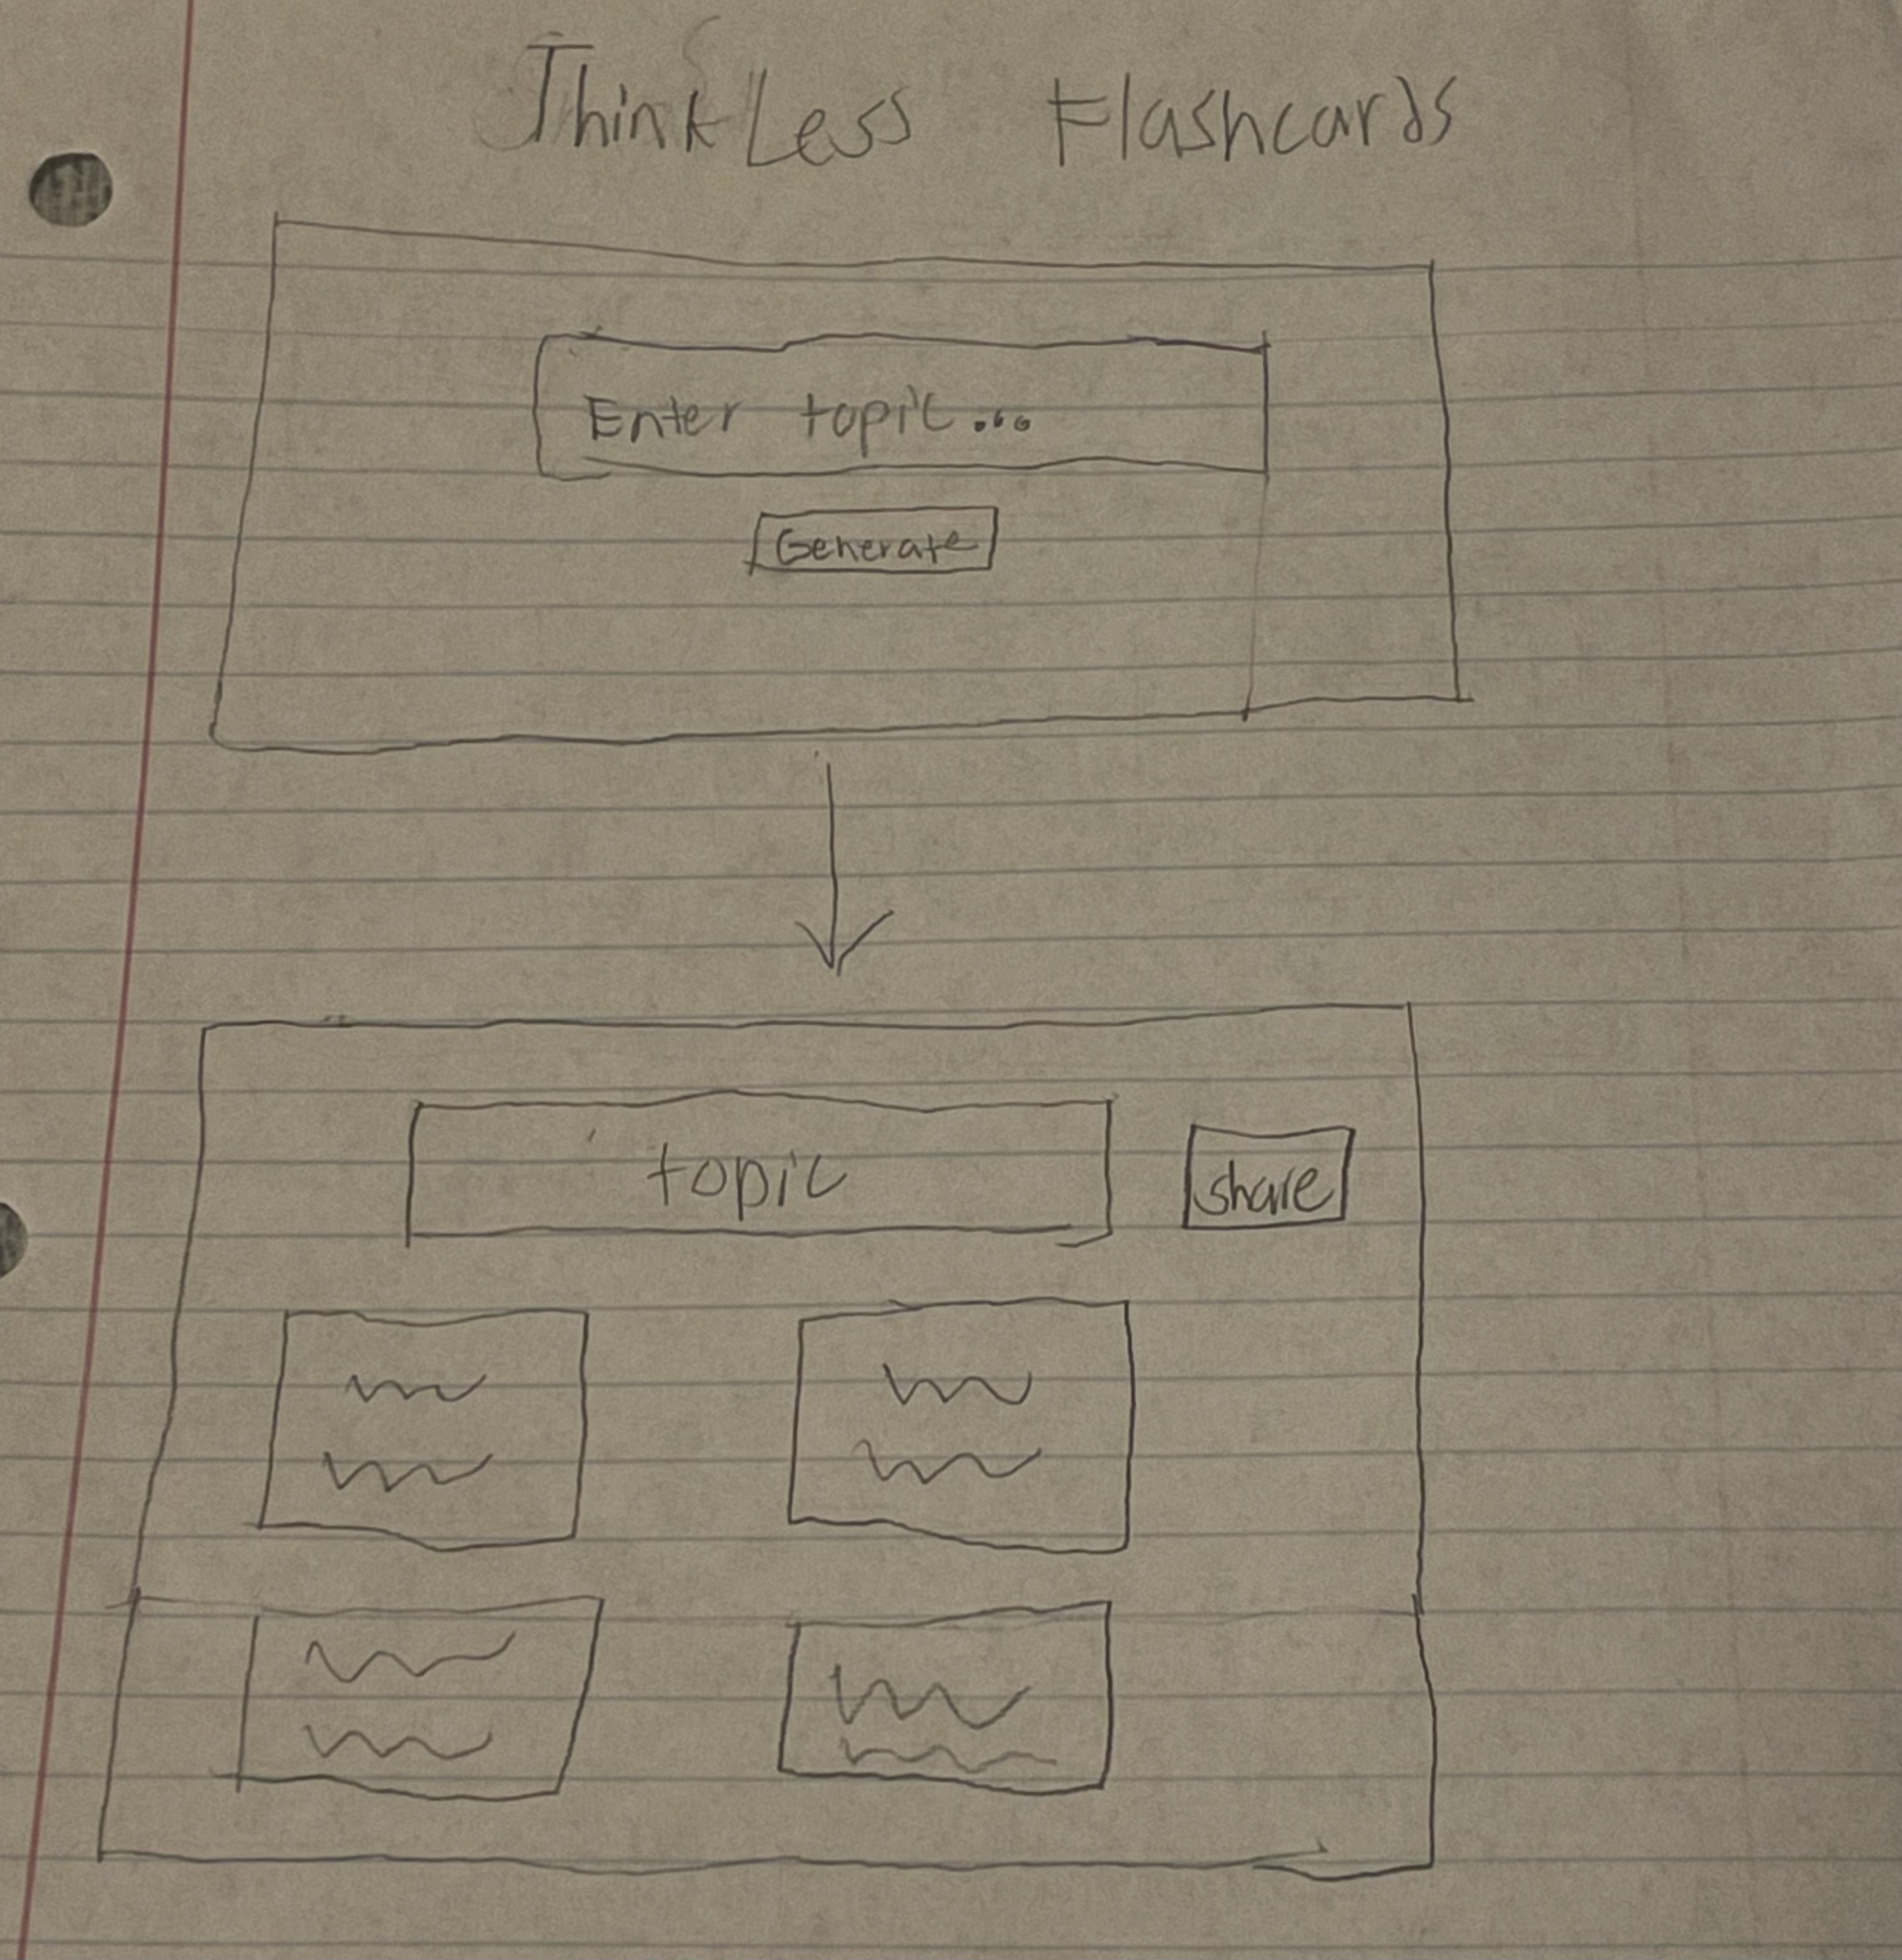 ThinkLess Flashcards
Enter topic...
Generate
topic
share